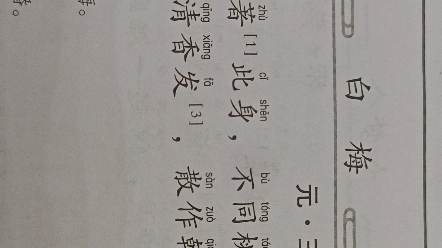 白梅
元·
zhù cǐ shēn bù tóng
著[1]此身，不同
qīng xiāng fā sàn zuò
清香发[3]，散作